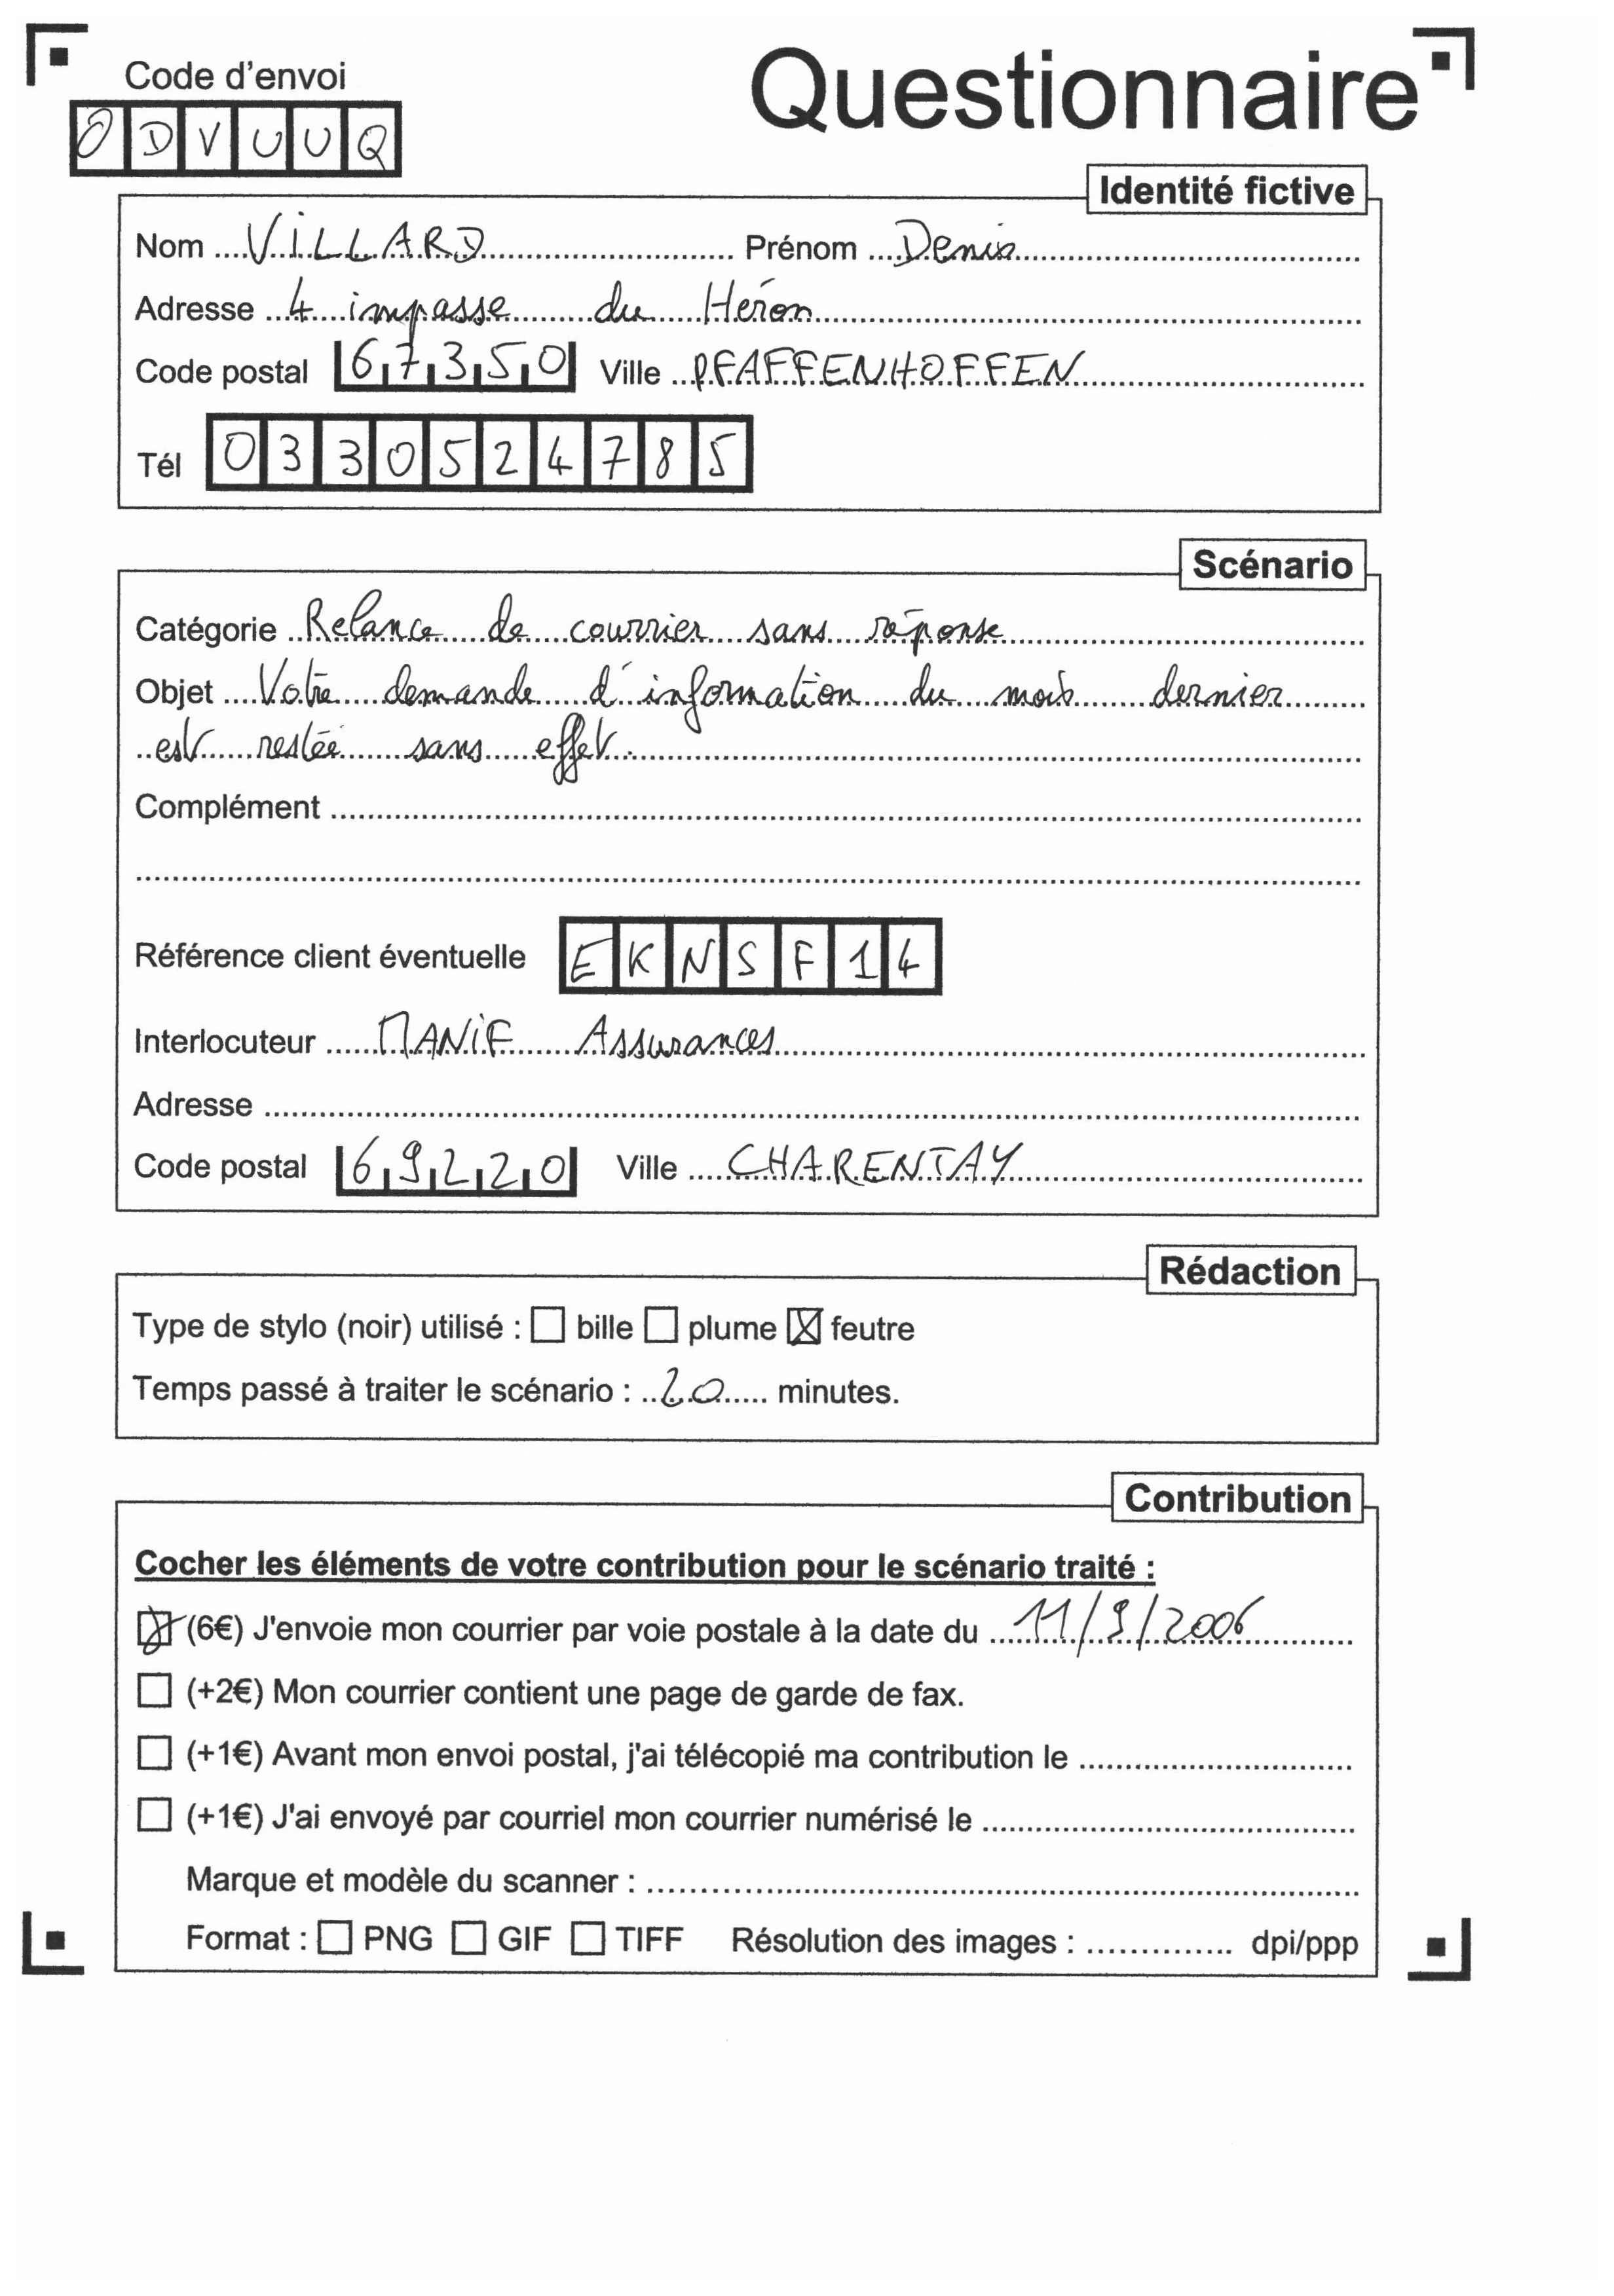 Code d'envoi
Questionnaire
O D V U U Q
Identité fictive
Nom VILLARD Prénom Denis
Adresse 4 impasse du Héron
Code postal 67350 Ville PFAFFENHOFFEN
Tél 0330524785
Scénario
Catégorie Relance de courrier sans réponse
Objet Votre demande d'information du mois dernier
est restée sans effet.
Complément
Référence client éventuelle EKNSF14
Interlocuteur MANIF Assurances
Adresse
Code postal 69220 Ville CHARENTAY
Rédaction
Type de stylo (noir) utilisé : ☐ bille ☐ plume ☒ feutre
Temps passé à traiter le scénario : 20 minutes.
Contribution
Cocher les éléments de votre contribution pour le scénario traité :
☒ (6€) J'envoie mon courrier par voie postale à la date du 11/9/2006
☐ (+2€) Mon courrier contient une page de garde de fax.
☐ (+1€) Avant mon envoi postal, j'ai télécopié ma contribution le
☐ (+1€) J'ai envoyé par courriel mon courrier numérisé le
Marque et modèle du scanner :
Format : ☐ PNG ☐ GIF ☐ TIFF Résolution des images : dpi/ppp